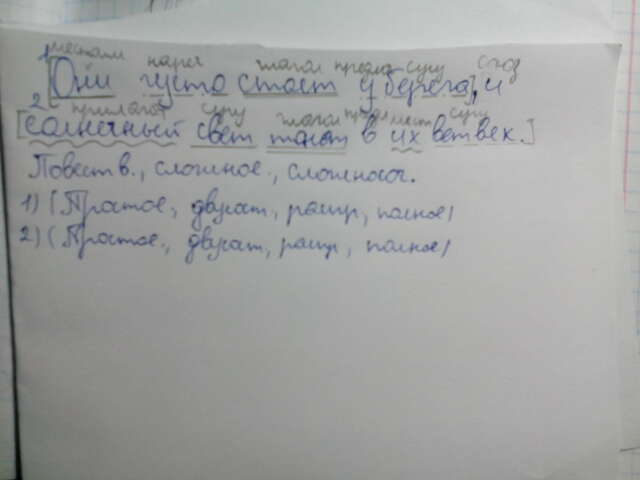 1 местоим нареч глагол предлог сущ союз
[Они густо стоят у берега], и
2 прилагат сущ глагол предл мест сущ
[солнечный свет тонет в их ветвек.]
Повеств., сложное., сложносоч.
1) (Простое, двусост, распр, полное)
2) (Простое., двусост, распр, полное)